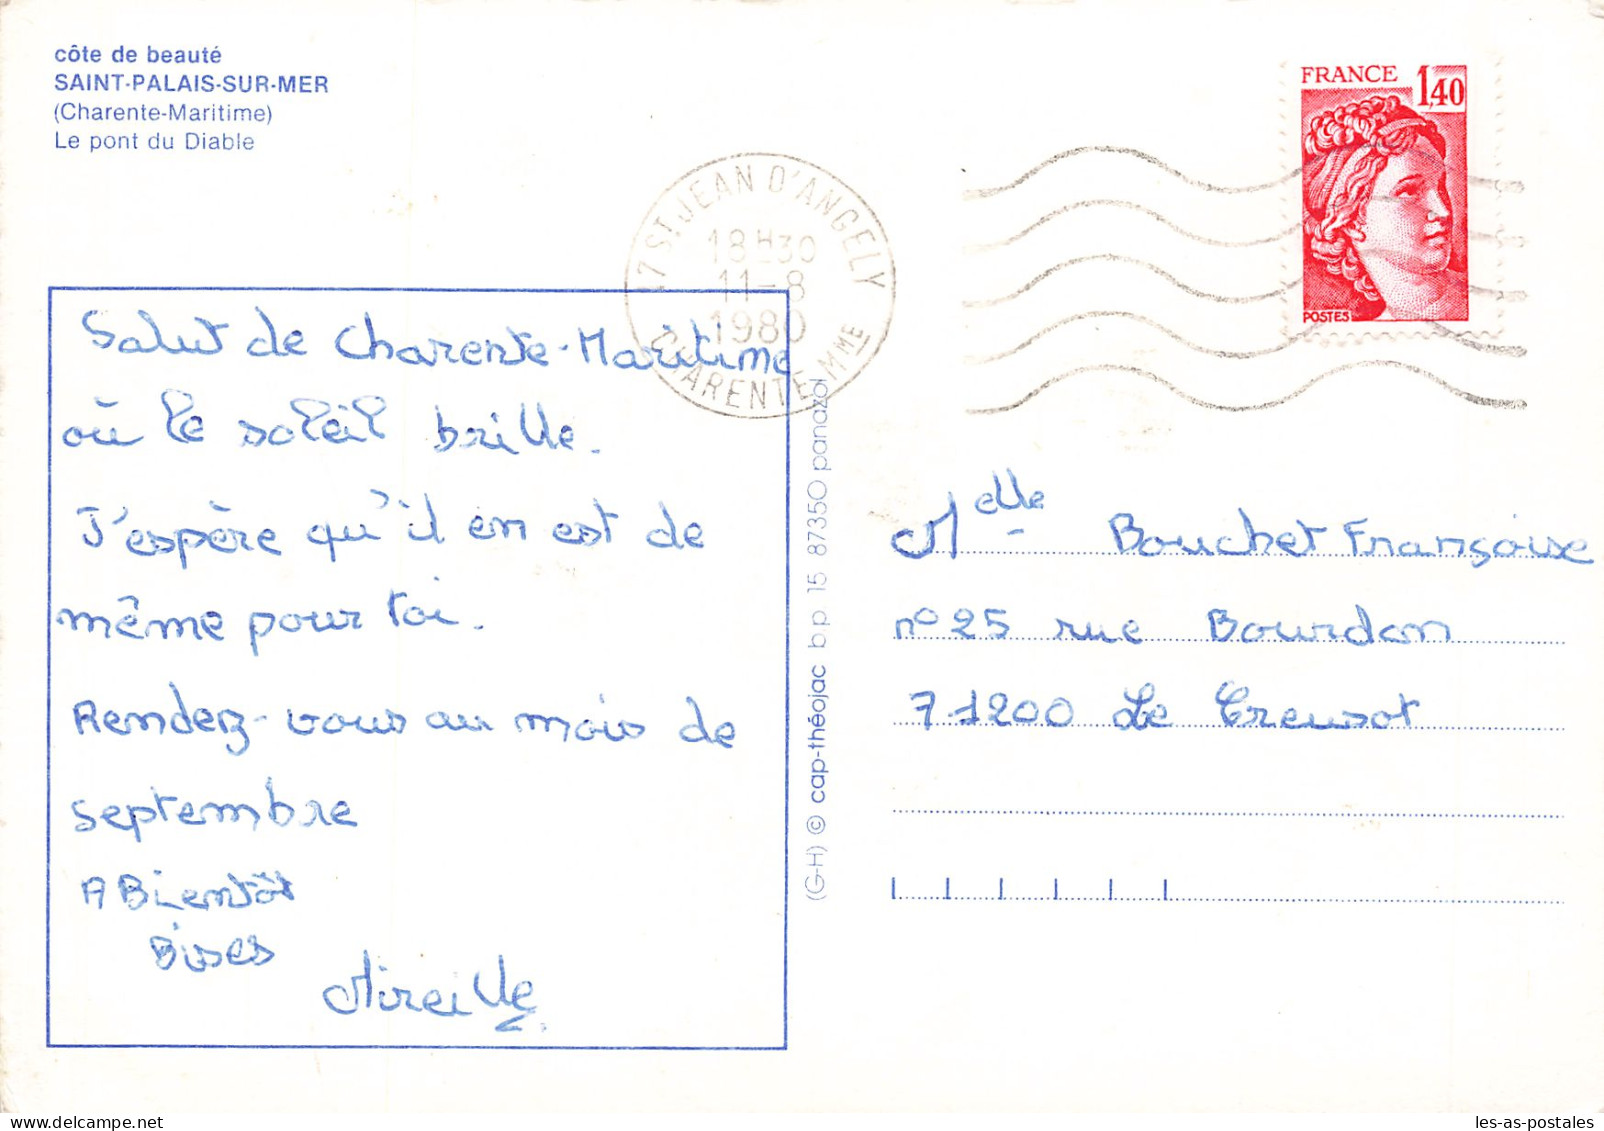 côte de beauté
SAINT-PALAIS-SUR-MER
(Charente-Maritime)
Le pont du Diable
FRANCE 1,40
POSTES
17 ST JEAN D'ANGELY
18H30
11-8
1980
CHARENTE MME
Salut de Charente-Maritime
où le soleil brille.
J'espère qu'il en est de
même pour toi.
Rendez-vous au mois de
septembre
A Bientôt
Bises
Mireille
(G-H) © cap-théojac bp 15 87350 panazol
Melle Bouchet Françoise
n° 25 rue Bourdon
71200 Le Creusot
les-as-postales